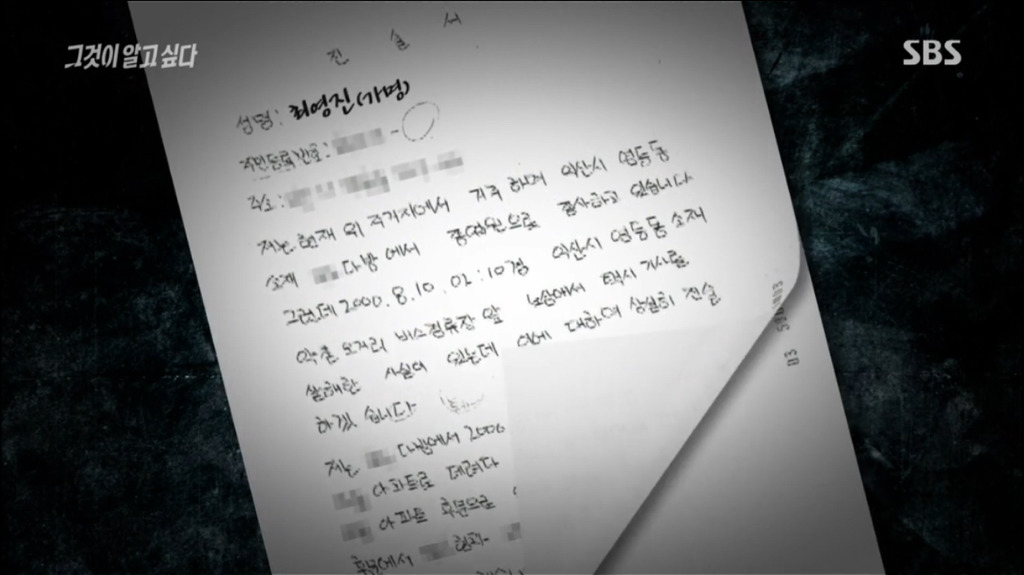 그것이 알고 싶다
SBS
진 술 서
성명 : 최영진(가명)
주민등록번호 : -
주소 :
저는 현재 위 주거지에서 거주 하며 익산시 영등동
소재 다방 에서 종업원으로 종사하고 있습니다
그런데 2000. 8. 10. 02:10경 익산시 영등동 소재
약촌 오거리 버스정류장 앞 노상에서 택시 기사를
살해한 사실이 있는데 이에 대하여 상실히 진술
하겠 습니다
저는 다방에서 2000
아파트로 데려다
아파트 후문으로
후문에서 형과